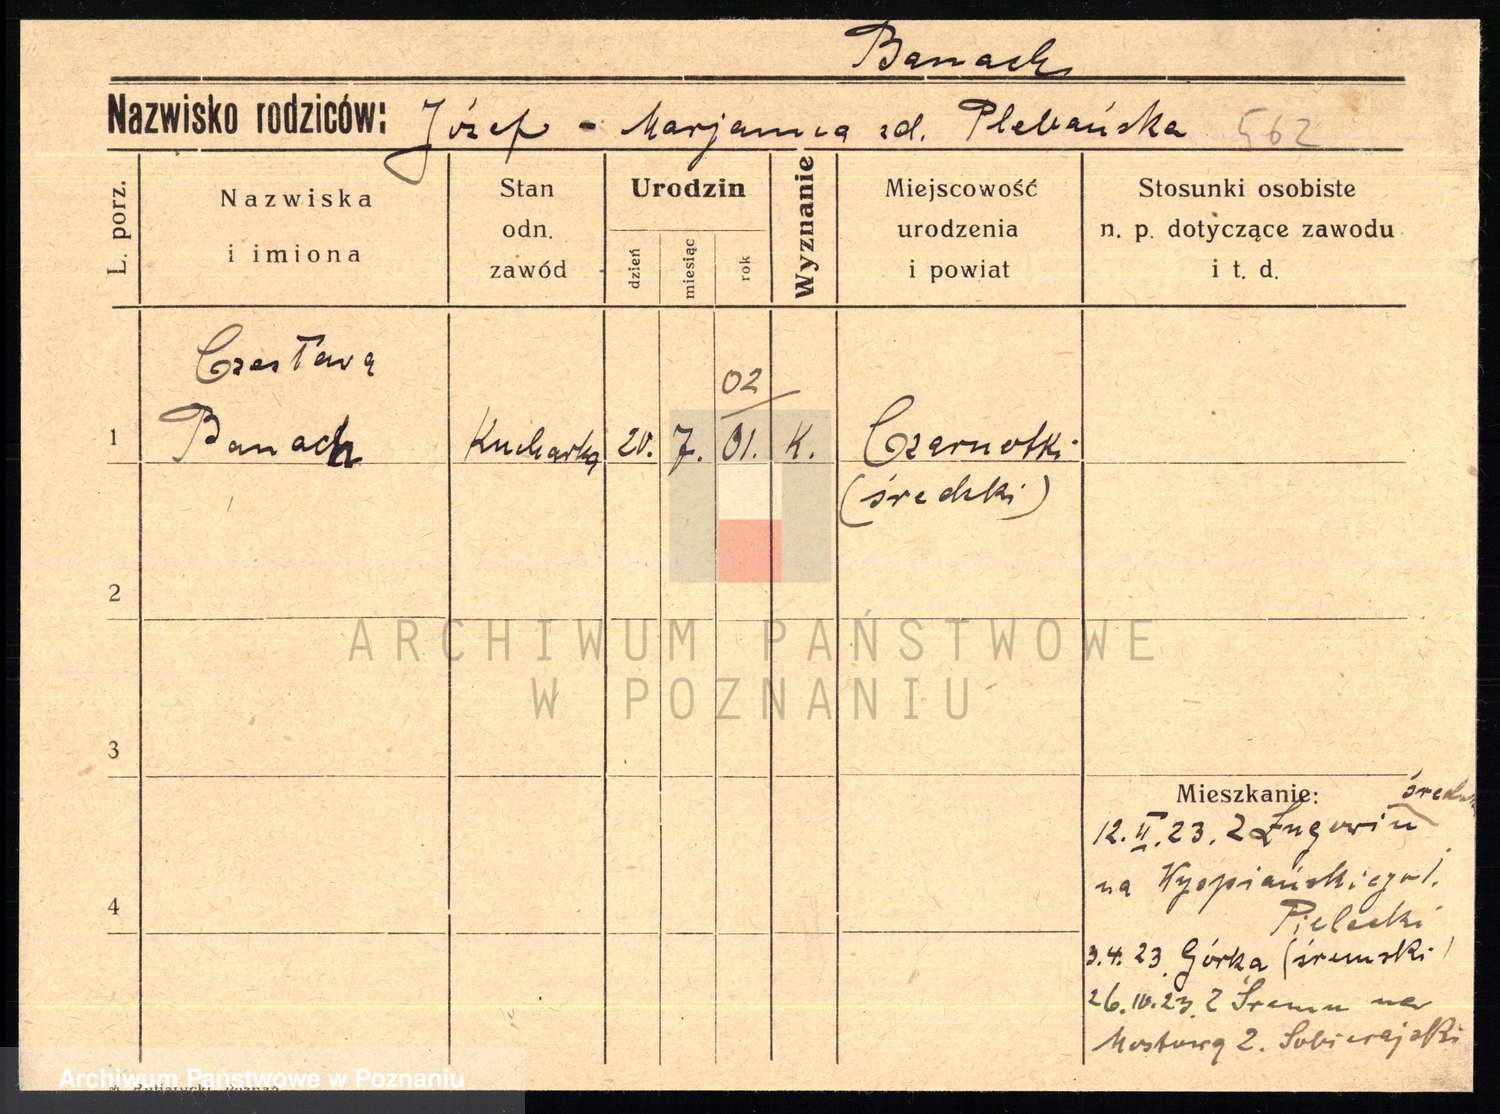 Banach
Nazwisko rodziców: Józef - Marjanna zd. Plebańska 562
L. porz.
Nazwiska
i imiona
Stan
odn.
zawód
Urodzin
dzień
miesiąc
rok
Wyznanie
Miejscowość
urodzenia
i powiat
Stosunki osobiste
n. p. dotyczące zawodu
i t. d.
Czesława
02
1 Banach Kucharka 20. 7. 01. K. Czarnotki
(średzki)
2
ARCHIWUM PAŃSTWOWE
W POZNANIU
3
Mieszkanie:
12. II. 23. Z
na Wyspiańskiego 1.
4
Pielecki
3.4.23 Górka (śremski)
26.IV.23. Z Śremu na
Mostową 2. Sobierajski
Archiwum Państwowe w Poznaniu